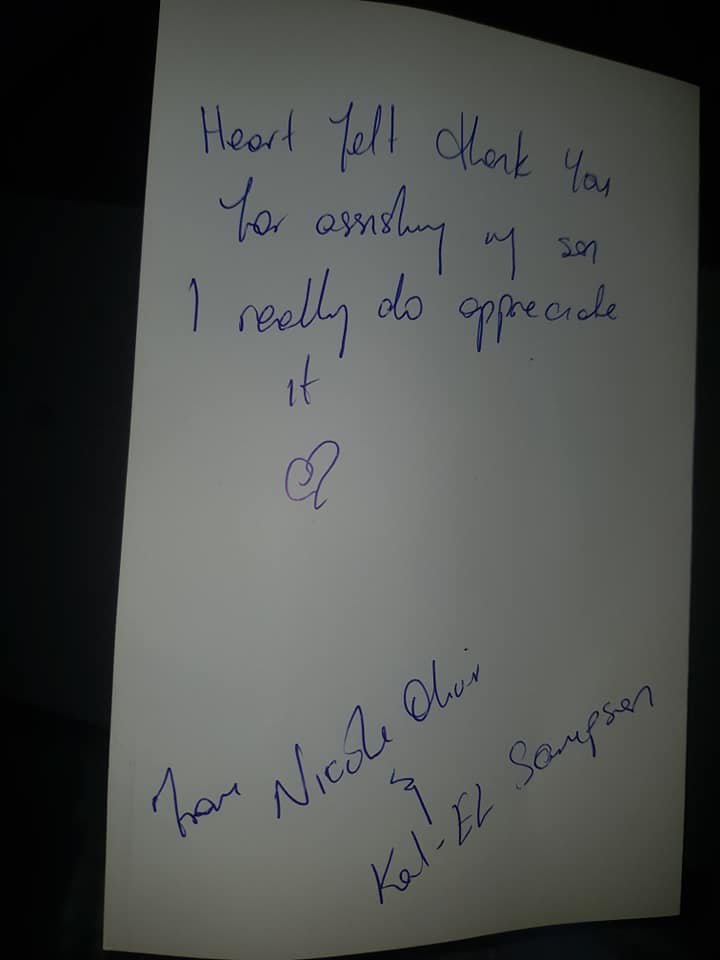 Heart felt thank you
for assisting my son
I really do appreciate
it
From Nicole
&
Kal-EL Sampson